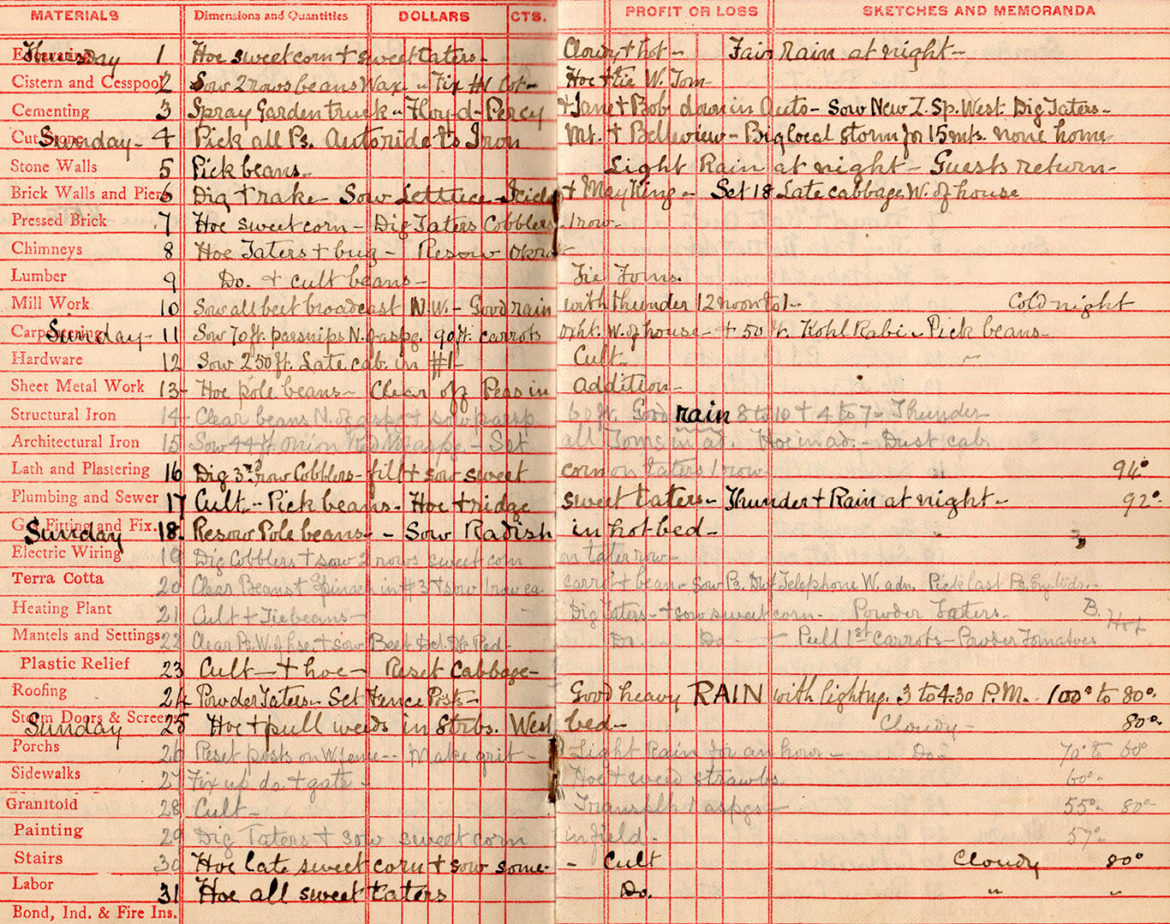 MATERIALS Dimensions and Quantities DOLLARS CTS. PROFIT OR LOSS SKETCHES AND MEMORANDA
Excavating Thursday 1 Hoe sweet corn + sweet taters - Cloudy + hot - Fair Rain at night -
Cistern and Cesspool 2 Sow 2 rows beans Wax - Fix H Cot - Hoe + tie W. Tom
Cementing 3 Spray Garden truck - Floyd - Percy + Jane + Bob down in Auto - Sow New Z. Sp. West. Dig Taters -
Cut Stone Sunday - 4 Pick all Ps. Auto ride to Iron Mt. + Belleview - Big local storm for 15 mts. none home
Stone Walls 5 Pick beans - Light Rain at night - Guests return -
Brick Walls and Piers 6 Dig + rake - Sow Lettuce - + May King - Set 18 Late cabbage W. of house
Pressed Brick 7 Hoe sweet corn - Dig Taters Cobblers 1 row -
Chimneys 8 Hoe Taters + bug - Resow Okra
Lumber 9 Do. + cult beans - Tie Toms.
Mill Work 10 Sow all beet broadcast N.W. - Good rain with thunder 12 noon to 1 - Cold night
Carpentering Sunday - 11 Sow 70 ft. parsnips N. of aspg. 90 ft. carrots W. of house - + 50 ft. Kohl Rabi - Pick beans -
Hardware 12 Sow 250 ft. Late cab. in #1 - Cult. "
Sheet Metal Work 13 - Hoe pole beans - Clear off Peas in addition -
Structural Iron 14 - Clear beans N. of aspg + sow 60 ft. Good rain 8 to 10 + 4 to 7 - Thunder
Architectural Iron 15 Sow 44 ft. Onion - Set all Toms in ad. Hoe in ad. - Dust cab.
Lath and Plastering 16 Dig 3rd row Cobblers - fill + sow sweet corn on taters 1 row - 94°
Plumbing and Sewer 17 Cult - Pick beans - Hoe + ridge sweet taters - Thunder + Rain at night - 92°
Gas Fitting and Fix. Sunday 18. Resow Pole beans - - Sow Radish in hot bed -
Electric Wiring 19 Dig Cobblers + sow 2 rows sweet corn on tater row -
Terra Cotta 20 Clear Beans + Spinach in #3 + sow 1 row ea. carrot + bean - Sow Ps. Dwf Telephone W. adn. Pick last Ps.
Heating Plant 21 Cult + Tie beans - Dig taters - + sow sweet corn - Powder Taters. B. Hot
Mantels and Settings 22 Clear Ps. W. of hse. + sow Beet Do Do - Pull 1st carrots - Powder Tomatoes
Plastic Relief 23 Cult - + hoe - Reset Cabbage -
Roofing 24 Powder Taters - Set Fence Posts - Good heavy RAIN with lightng. 3 to 4:30 P.M. - 100° to 80°
Storm Doors & Screens Sunday 25 Hoe + pull weeds in Strbs. West bed - Cloudy - 80°
Porchs 26 Reset posts on W. fence - Make grit - Light Rain for an hour - Do - 70° to 60°
Sidewalks 27 Fix up do. + gate - Hoe + weed strawbs. 60° -
Granitoid 28 Cult - Transplt 1 aspgs - 55° - 80° -
Painting 29 Dig Taters + sow sweet corn in field. 57° -
Stairs 30 Hoe late sweet corn + sow some - - Cult Cloudy 80°
Labor 31 Hoe all sweet taters Do. " "
Bond, Ind. & Fire Ins.